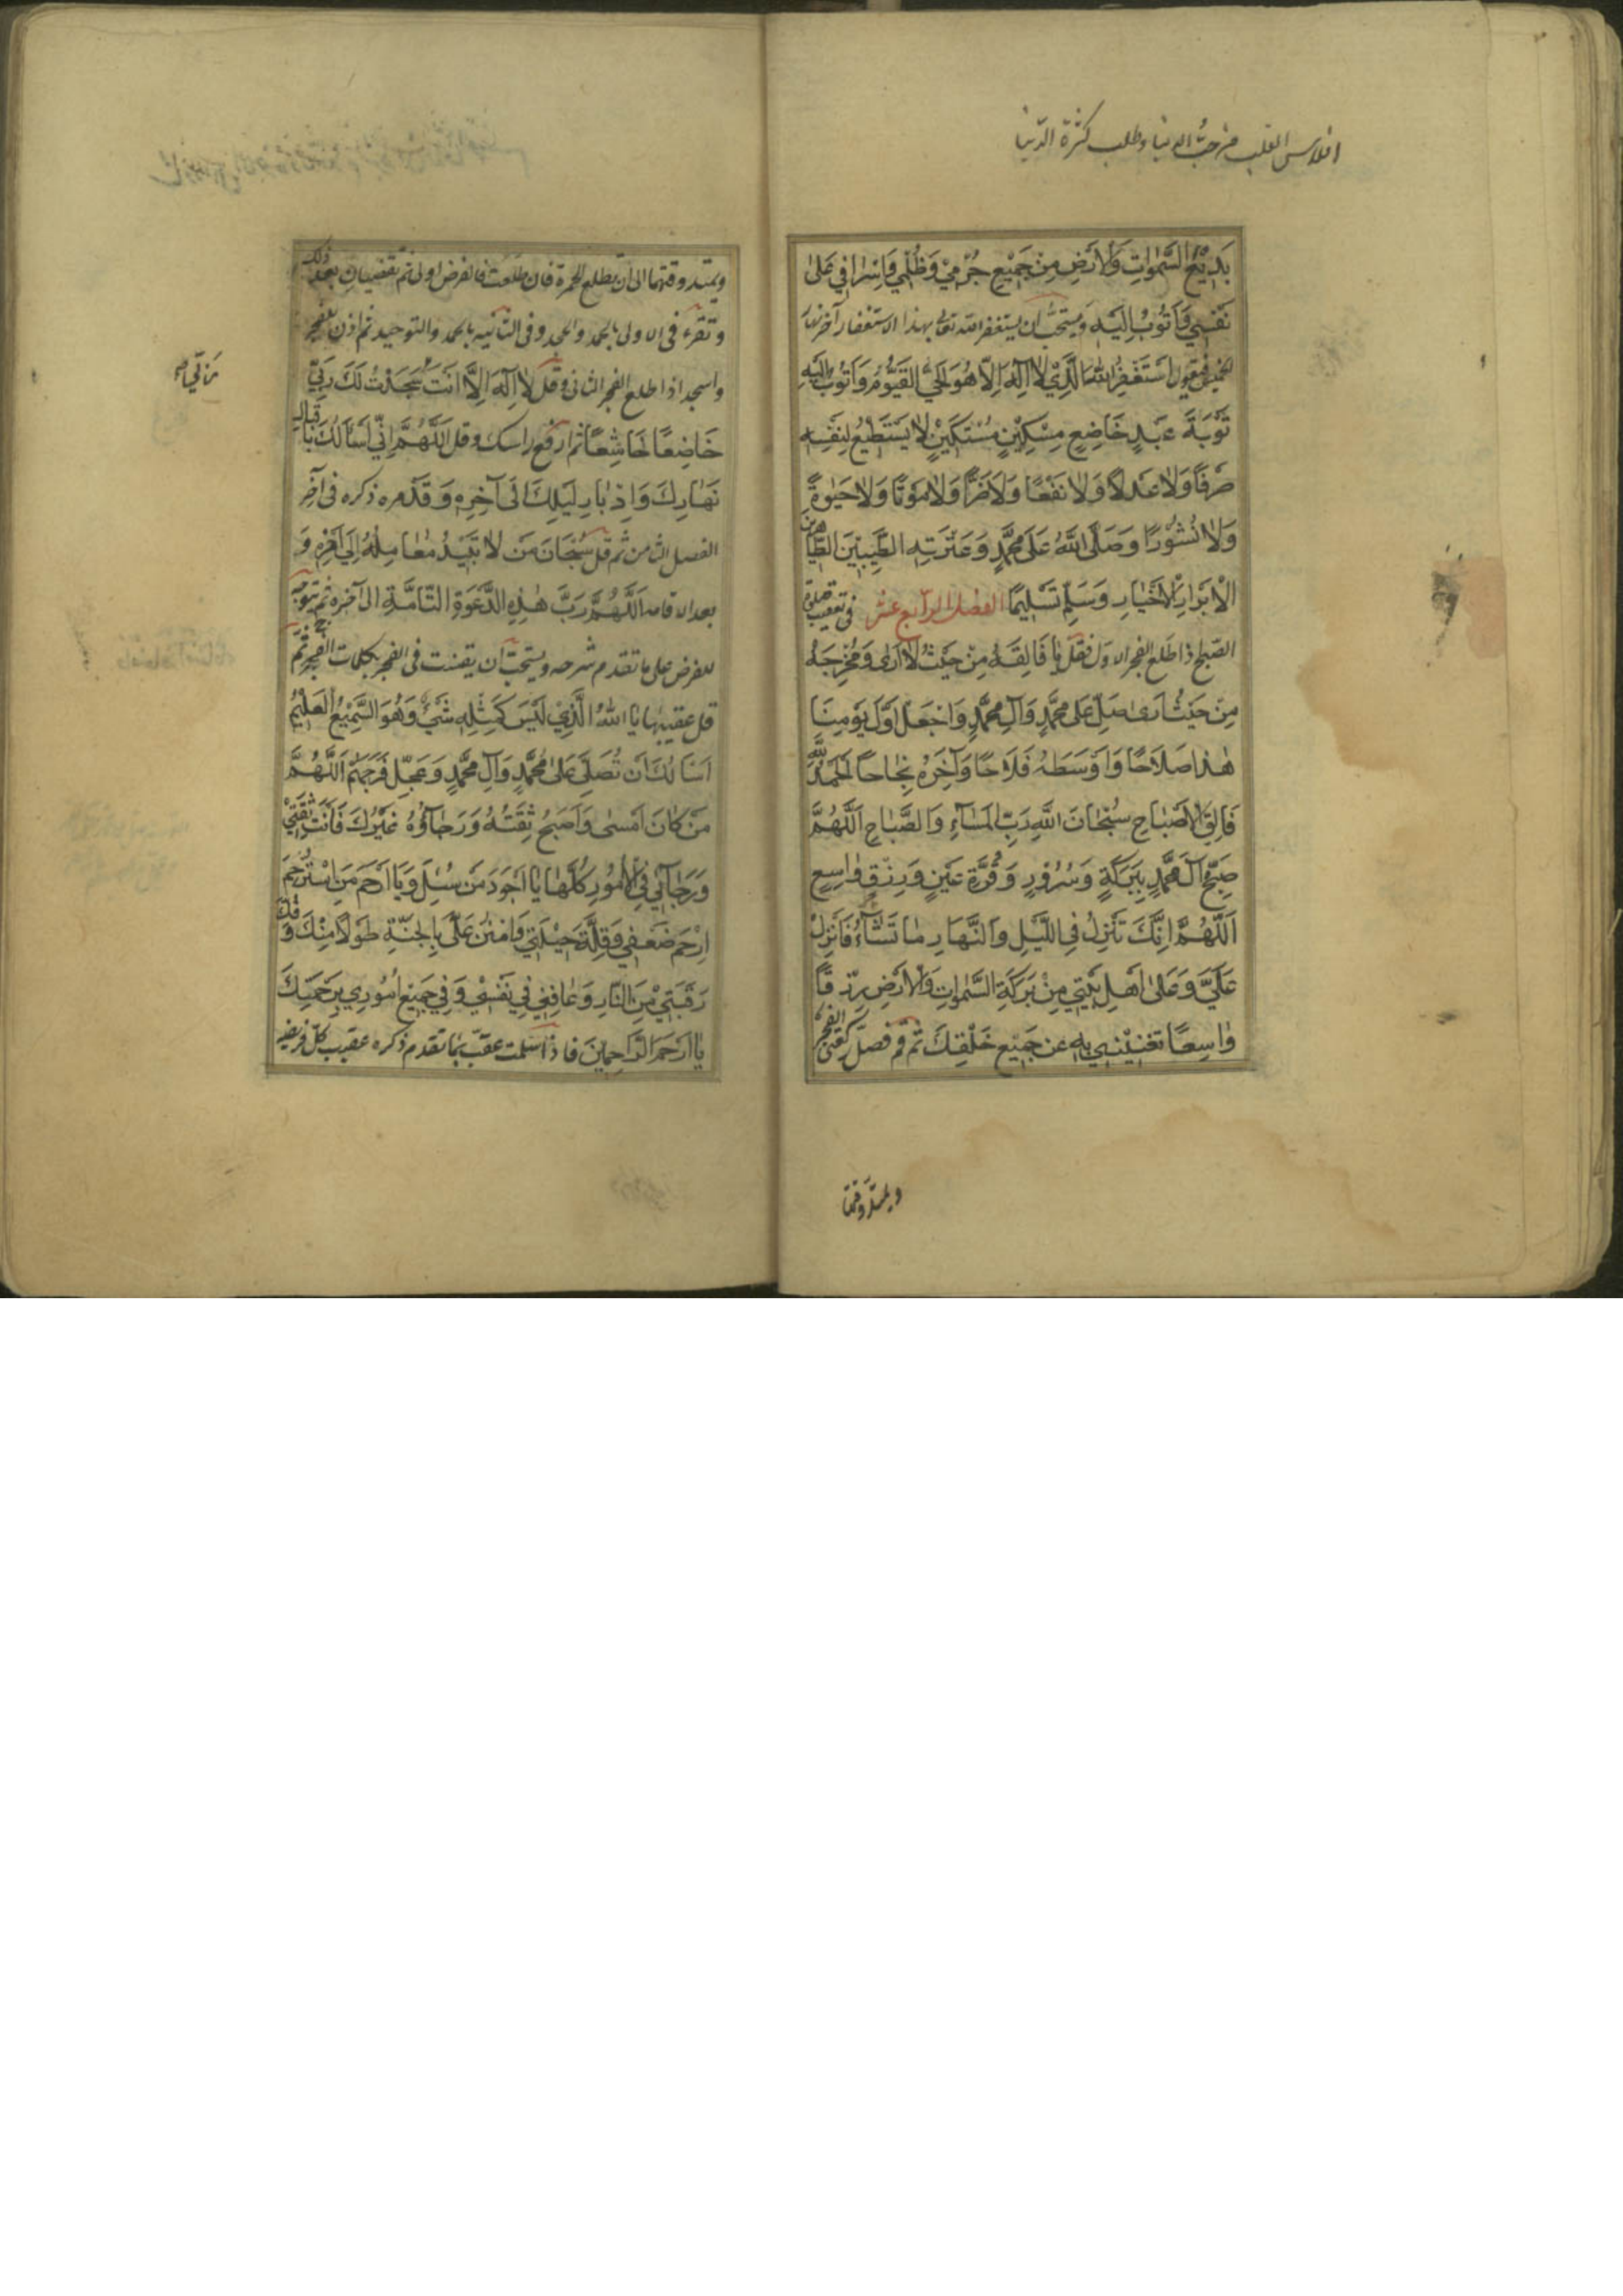 افلاس القلب من حب الدنيا وطلب كثرة الدنيا
بَدِيْعِ السَّمٰوَاتِ وَالْاَرْضِ مِنْ جَمِيْعِ جُرْمِيْ وَظُلْمِيْ وَاِسْرَافِي عَلىٰ
نَفْسِي وَاَتُوْبُ اِلَيْهِ ويستحبّ ان يستغفر الله تعالى بهذا الاستغفار آخر نهار
الخميس فيقول اَسْتَغْفِرُ اللهَ الَّذِيْ لَا اِلٰهَ اِلَّا هُوَ الْحَيُّ الْقَيُّوْمُ وَاَتُوْبُ اِلَيْهِ
تَوْبَةَ عَبْدٍ خَاضِعٍ مِسْكِيْنٍ مُسْتَكِيْنٍ لَا يَسْتَطِيْعُ لِنَفْسِهِ
صَرْفًا وَلَا عَدْلًا وَلَا نَفْعًا وَلَا ضَرًّا وَلَا مَوْتًا وَلَا حَيٰوةً
وَلَا نُشُوْرًا وَصَلَّى اللهُ عَلىٰ مُحَمَّدٍ وَعِتْرَتِهِ الطَّيِّبِيْنَ الطَّاهِرِيْنَ
الْاَبْرَارِ الْاَخْيَارِ وَسَلِّمْ تَسْلِيْمًا الفصل الرّابع عشر في تعقيب صلوة
الصّبح اذا طلع الفجر الاوّل فقل يَا فَالِقَهُ مِنْ حَيْثُ لَا اَرىٰ وَمُخْرِجَهُ
مِنْ حَيْثُ اَرىٰ صَلِّ عَلىٰ مُحَمَّدٍ وَآلِ مُحَمَّدٍ وَاجْعَلْ اَوَّلَ يَوْمِنَا
هٰذَا صَلَاحًا وَاَوْسَطَهُ فَلَاحًا وَآخِرَهُ نَجَاحًا اَلْحَمْدُ لِلّٰهِ
فَالِقِ الْاَصْبَاحِ سُبْحَانَ اللهِ رَبِّ الْمَسَاءِ وَالصَّبَاحِ اَللّٰهُمَّ
صَبِّحْ آلَ مُحَمَّدٍ بِبَرَكَةٍ وَسُرُوْرٍ وَقُرَّةِ عَيْنٍ وَرِزْقٍ وَاسِعٍ
اَللّٰهُمَّ اِنَّكَ تُنْزِلُ فِي اللَّيْلِ وَالنَّهَارِ مَا تَشَاءُ فَاَنْزِلْ
عَلَيَّ وَعَلىٰ اَهْلِ بَيْتِي مِنْ بَرَكَةِ السَّمٰوَاتِ وَالْاَرْضِ رِزْقًا
وَاسِعًا تُغْنِيْنِي بِهِ عَنْ جَمِيْعِ خَلْقِكَ ثم قم فصلّ ركعتي الفجر
ويمتدّ وقتهما
ويمتد وقتهما الى ان يطلع الحمرة فان طلعت فالفرض اولى ثم تقضيان بعد ذلك
وتقرء فى الاولى بالحمد والجحد وفى الثانيه بالحمد والتوحيد ثم اذن للفجر
واسجد اذا طلع الفجر الثانى وقل لَا اِلٰهَ اِلَّا اَنْتَ سَجَدْتُ لَكَ رَبِّي
خَاضِعًا خَاشِعًا ثم ارفع راسك وقل اَللّٰهُمَّ اِنِّي اَسْاَلُكَ بِاِقْبَالِ
نَهَارِكَ وَاِدْبَارِ لَيْلِكَ الى آخِرِهِ وَقَدْ مر ذكره فى آخر
الفصل الثامن ثم قل سُبْحَانَ مَنْ لَا تَبِيْدُ مَعَالِمُهُ اِلىٰ آخِرِهِ وَ
بعد الاقامه اَللّٰهُمَّ رَبَّ هٰذِهِ الدَّعْوَةِ التَّامَّةِ الى آخره ثم يتوجه
للفرض على ما تقدم شرحه ويستحبّ ان يقنت فى الفجر بكلمات الفرج ثم
قل عقيبها يَا اَللهُ الَّذِيْ لَيْسَ كَمِثْلِهِ شَيْءٌ وَهُوَ السَّمِيْعُ الْعَلِيْمُ
اَسْاَلُكَ اَنْ تُصَلِّيَ عَلىٰ مُحَمَّدٍ وَآلِ مُحَمَّدٍ وَعَجِّلْ فَرَجَهُمْ اَللّٰهُمَّ
مَنْ كَانَ اَمْسىٰ وَاَصْبَحَ ثِقَتُهُ وَرَجَاؤُهُ غَيْرُكَ فَاَنْتَ ثِقَتِيْ
وَرَجَائِي فِي الْاُمُوْرِ كُلِّهَا يَا اَجْوَدَ مَنْ سُئِلَ وَيَا اَرْحَمَ مَنِ اسْتُرْحِمَ
اِرْحَمْ ضَعْفِي وَقِلَّةَ حِيْلَتِي وَامْنُنْ عَلَيَّ بِالْجَنَّةِ طَوْلًا مِنْكَ وَفُكَّ
رَقَبَتِيْ مِنَ النَّارِ وَعَافِنِي فِي نَفْسِيْ وَفِي جَمِيْعِ اُمُوْرِي بِرَحْمَتِكَ
يَا اَرْحَمَ الرَّاحِمِيْنَ فاذا سلمت عقّب بما تقدم ذكره عقيب كلّ فريضه